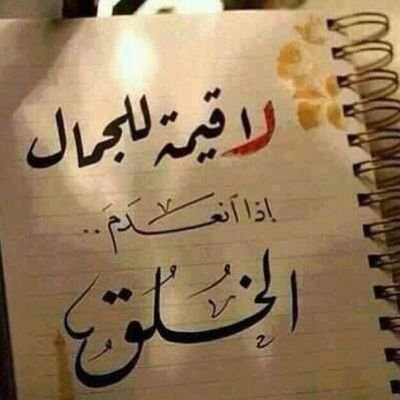 لا قيمة للجمال
إذا انعدَمَ..
الخُلُق